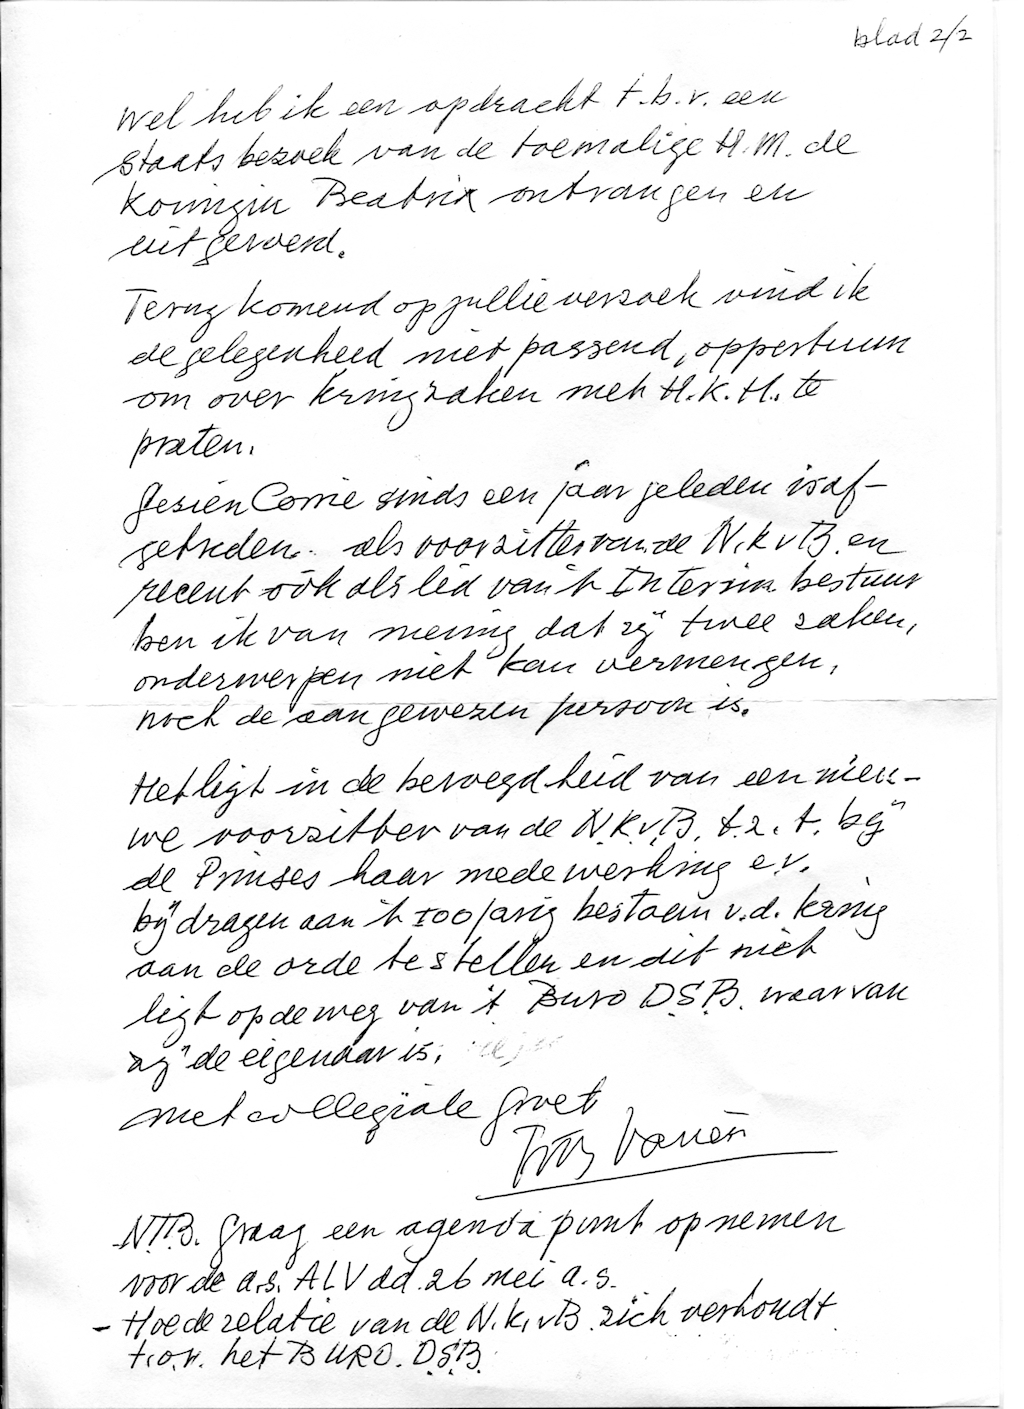 blad 2/2
Wel heb ik een opdracht t.b.v. een
staatsbezoek van de toemalige H.M. de
Koningin Beatrix ontvangen en
uitgevoerd.
Terug komend op jullie verzoek vind ik
de gelegenheid niet passend, opportuun
om over kringzaken met H.K.H. te
praten.
Gezien Corrie sinds een jaar geleden is af-
getreden. als voorzitter van de N.K.v.B. en
recent ook als lid van 't Interim bestuur
ben ik van mening dat zij twee zaken,
onderwerpen niet kan vermengen,
noch de aangewezen persoon is.
Het ligt in de bevoegdheid van een nieu-
we voorzitter van de N.K.v.B. t.z.t. bij
de Prinses haar medewerking e.v.
bijdragen aan 't 100 jarig bestaan v.d. kring
aan de orde te stellen en dit niet
ligt op de weg van 't Buro D.S.B. waarvan
zij de eigenaar is.
met collegiale groet
N.B. Graag een agenda punt opnemen
voor de a.s. ALV dd. 26 mei a.s.
- Hoe de relatie van de N.K.v.B. zich verhoudt
t.o.v. het BURO. D.S.B.